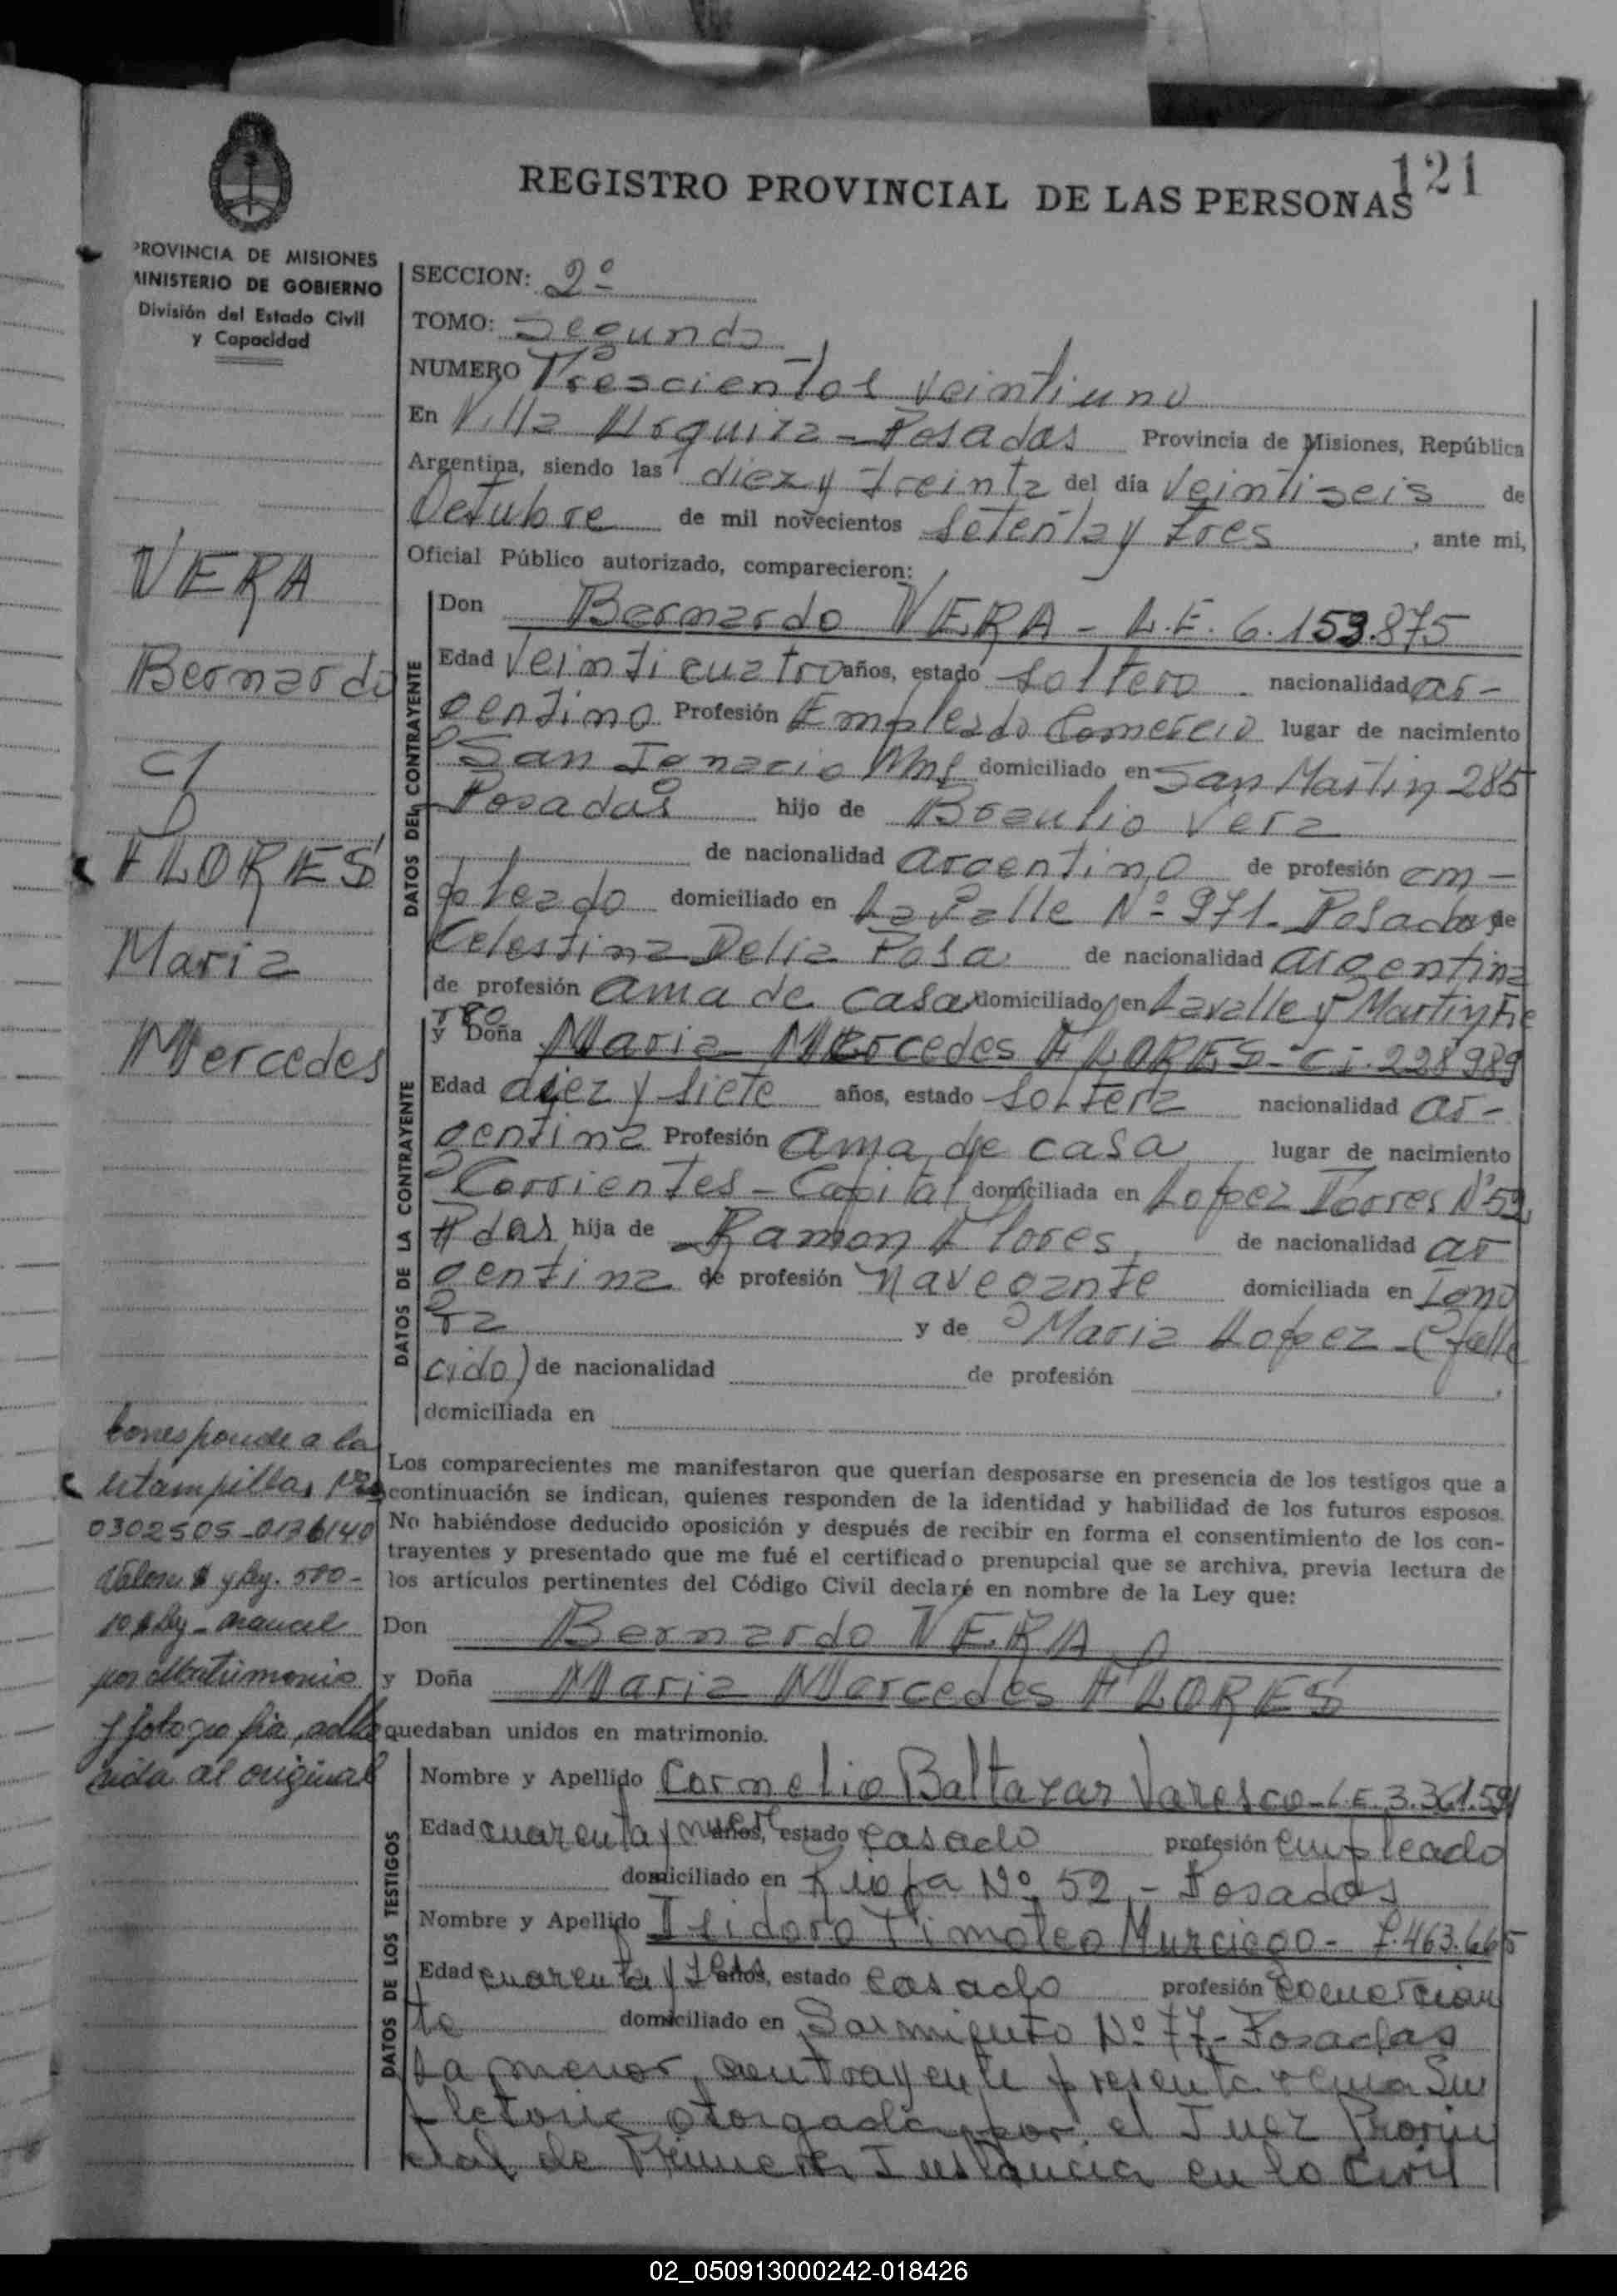 121
REGISTRO PROVINCIAL DE LAS PERSONAS
PROVINCIA DE MISIONES
MINISTERIO DE GOBIERNO
División del Estado Civil
y Capacidad
SECCION: 2º
TOMO: Segundo
NUMERO Trescientos veintiuno
En Villa Urquiza - Posadas Provincia de Misiones, República
Argentina, siendo las diez y treinta del día veintiseis de
Octubre de mil novecientos setenta y tres, ante mi,
Oficial Público autorizado, comparecieron:
VERA
Bernardo
c/
FLORES
Maria
Mercedes
DATOS DEL CONTRAYENTE
Don Bernardo VERA - L.E. 6.153.875
Edad veinticuatro años, estado soltero nacionalidad ar-
gentino Profesión Empleado Comercio lugar de nacimiento
San Ignacio Mns domiciliado en San Martin 285
Posadas hijo de Braulio Vera
de nacionalidad argentino de profesión em-
pleado domiciliado en Lavalle Nº 971- Posadas y de
Celestina Delia Posa de nacionalidad argentina
de profesión ama de casa domiciliado en Lavalle y Martin Fie
rro
DATOS DE LA CONTRAYENTE
y Doña Maria Mercedes FLORES - C.I. 228989
Edad diez y siete años, estado soltera nacionalidad ar-
gentina Profesión ama de casa lugar de nacimiento
Corrientes - Capital domiciliada en Lopez Torres Nº 52
Pdas hija de Ramon Flores, de nacionalidad ar
gentina de profesión navegante domiciliada en Igno
ra y de Maria Lopez - (falle
cido) de nacionalidad de profesión
domiciliada en
Corresponde a la
estampillas Nº
0302505-0136140
Valores $ y Ley. 500-
10 $ Ley - arancel
por Matrimonio
y fotografia, adhe
rida al original
Los comparecientes me manifestaron que querían desposarse en presencia de los testigos que a
continuación se indican, quienes responden de la identidad y habilidad de los futuros esposos.
No habiéndose deducido oposición y después de recibir en forma el consentimiento de los con-
trayentes y presentado que me fué el certificado prenupcial que se archiva, previa lectura de
los artículos pertinentes del Código Civil declaré en nombre de la Ley que:
Don Bernardo VERA
y Doña Maria Mercedes FLORES
quedaban unidos en matrimonio.
DATOS DE LOS TESTIGOS
Nombre y Apellido Cornelio Baltazar Varesco - L.E. 3.361.591
Edad cuarenta y nueve años, estado casado profesión empleado
domiciliado en Rioja Nº 52 - Posadas
Nombre y Apellido Isidoro Timoteo Murciego - 7.463.665
Edad cuarenta y tres años, estado casado profesión comercian
te domiciliado en Sarmiento Nº 77 - Posadas
La menor contrayente presenta venia Su
pletoria otorgada por el Juez Provin
cial de Primera Instancia en lo Civil
02_050913000242-018426